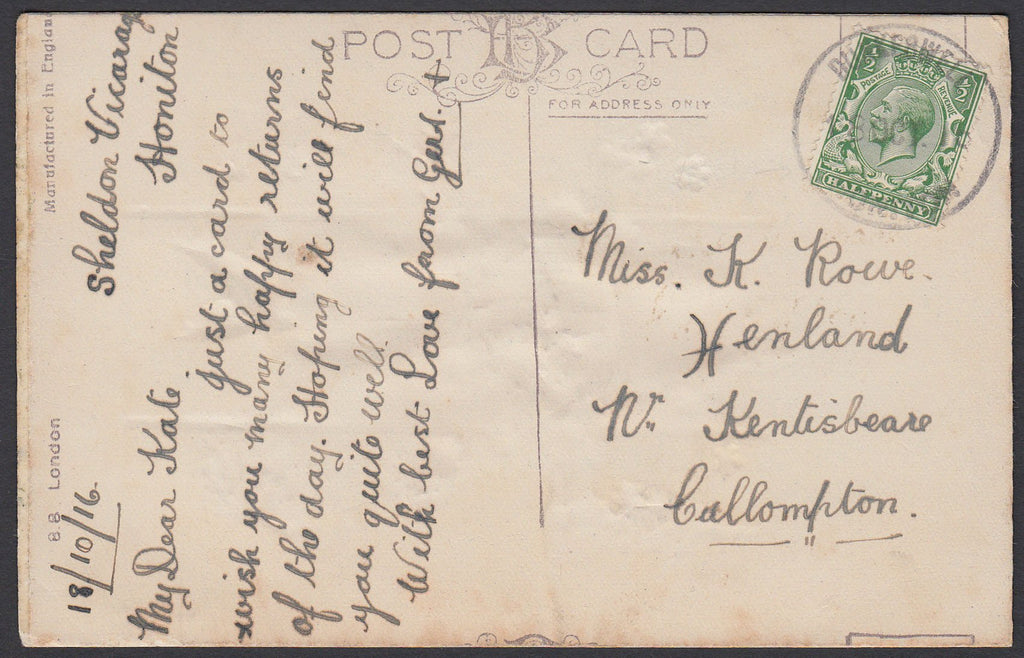 Manufactured in England
B.B London
POST CARD
FOR ADDRESS ONLY
Sheldon Vicarag
Honiton
18/10/16.
My Dear Kate
just a card to
wish you many happy returns
of the day. Hoping it will find
you quite well.
With best Love from Gert. +
½ ½
POSTAGE REVENUE
HALFPENNY
Miss. K. Rowe.
Henland
Nr Kentisbeare
Cullompton.